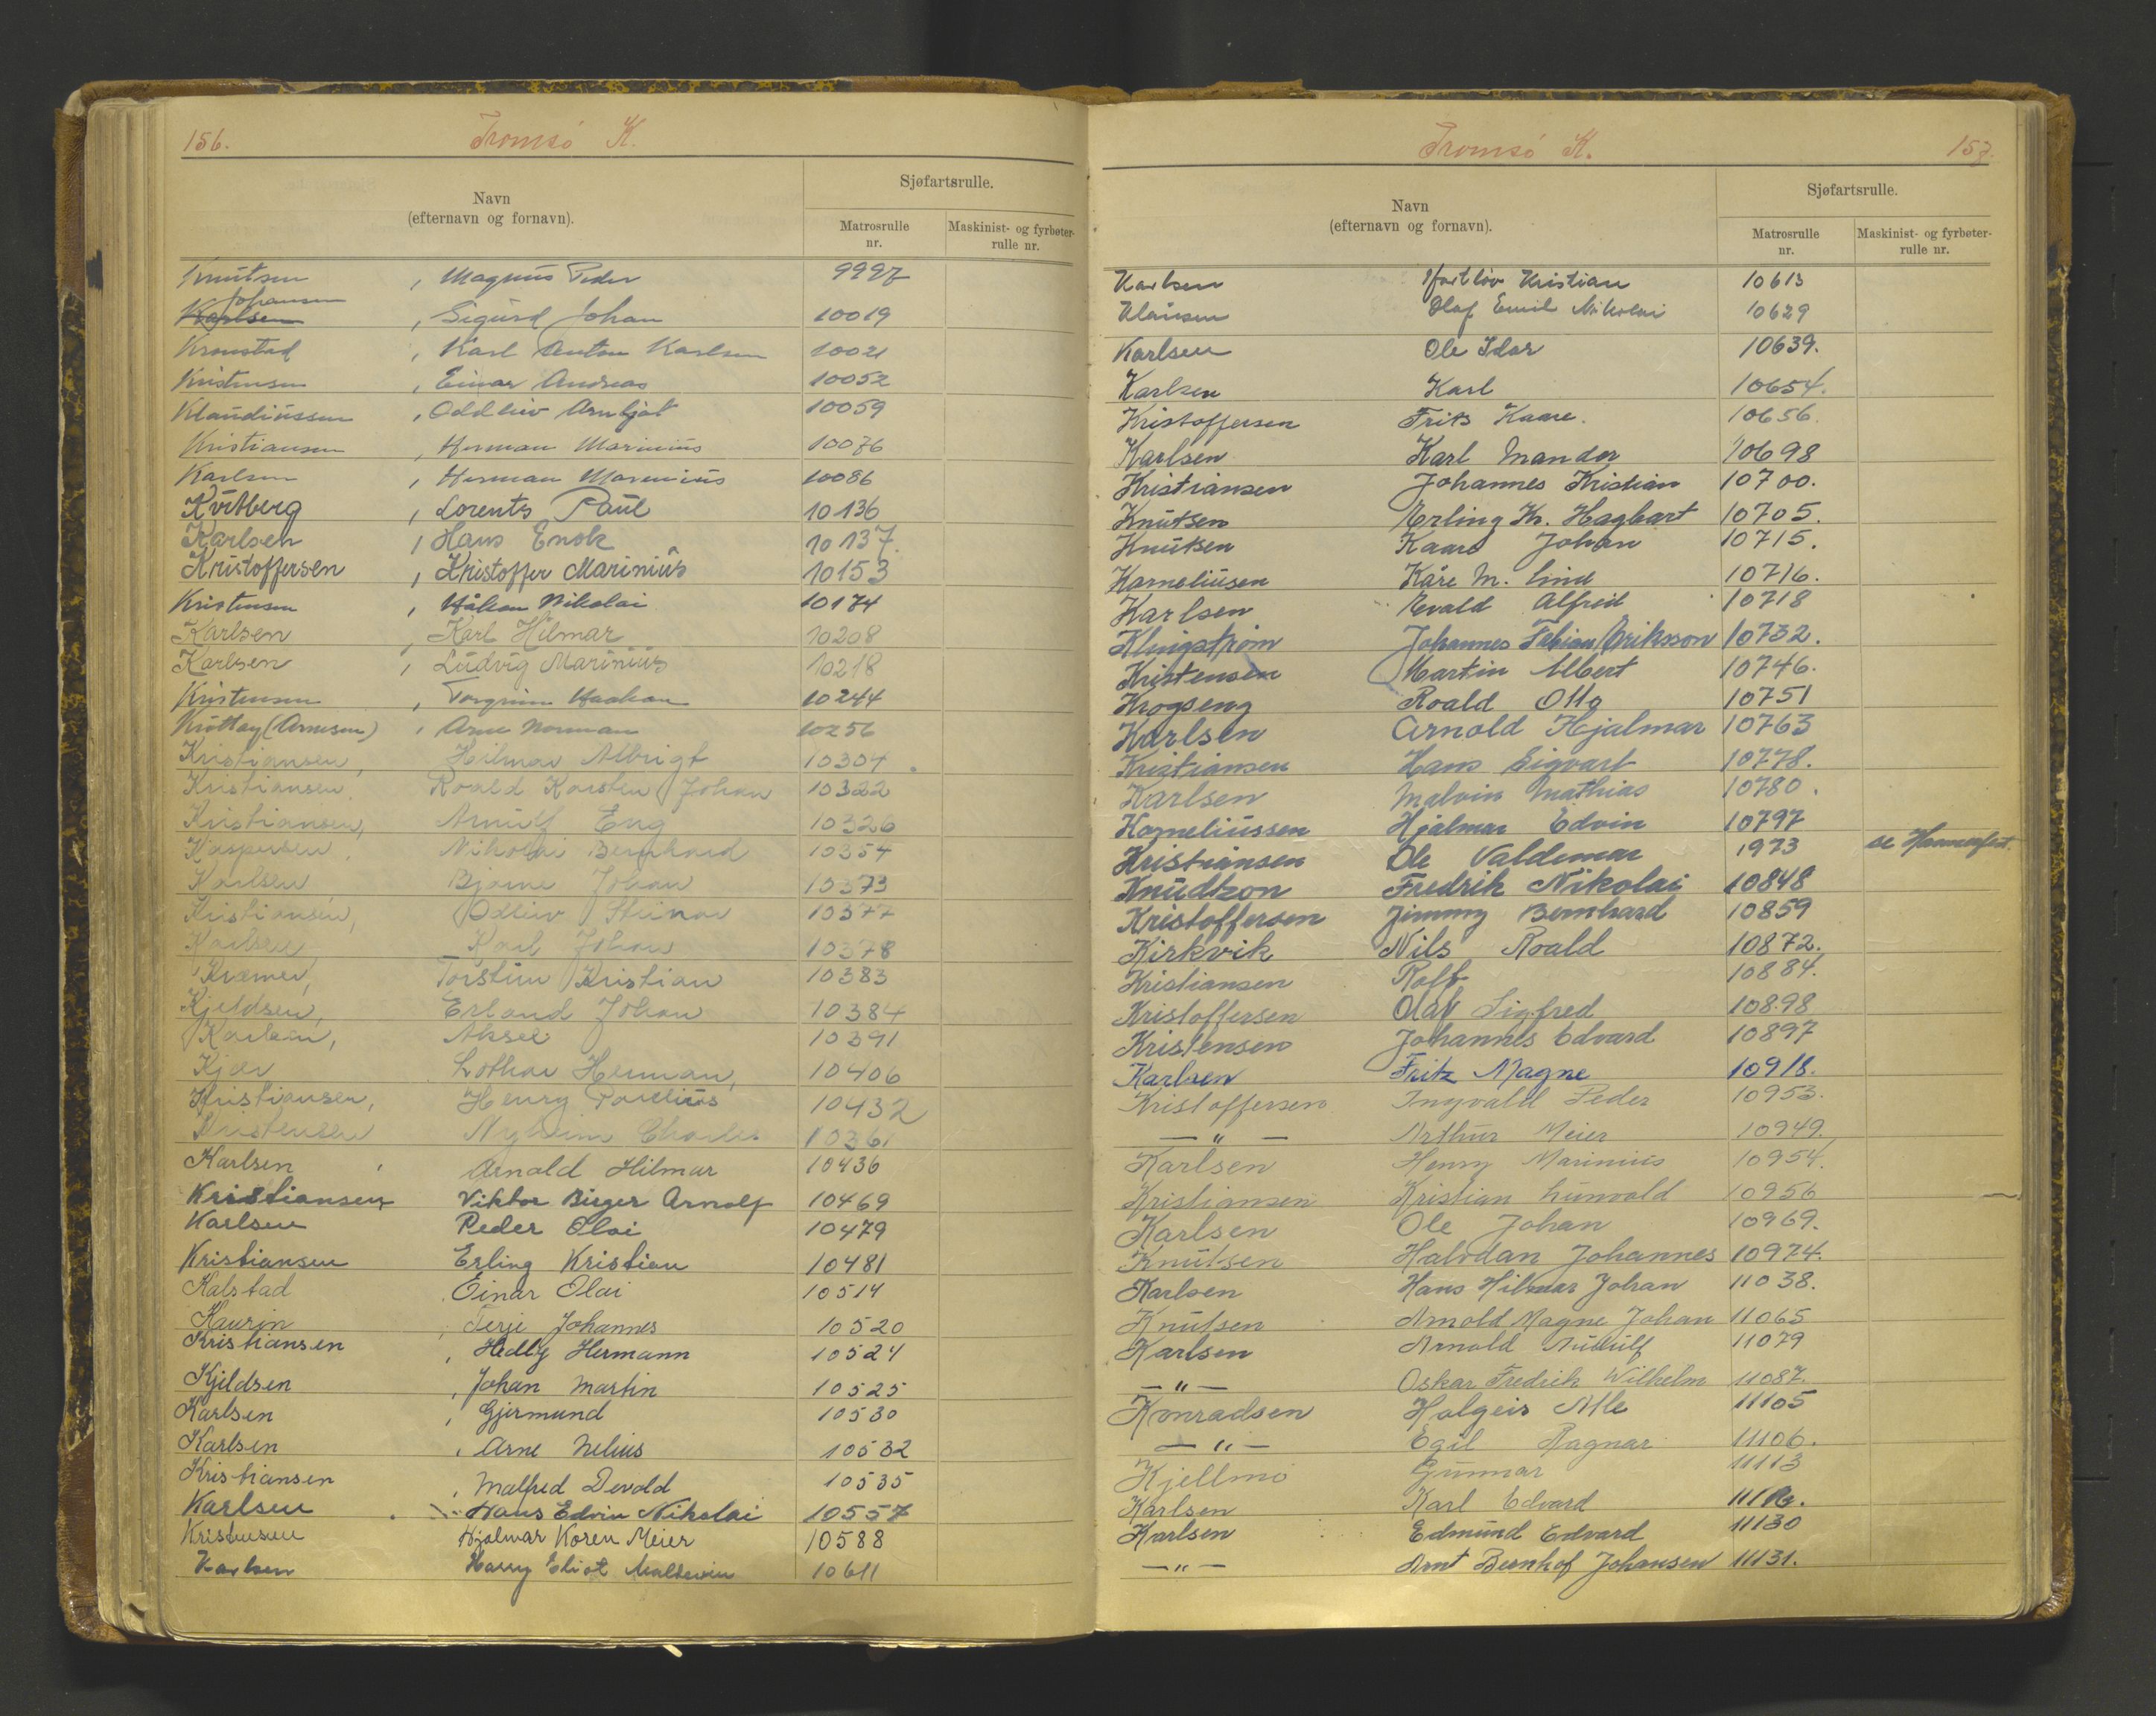 156.
Tromsø K.
Navn
(efternavn og fornavn).
Sjøfartsrulle.
Matrosrulle
nr.
Maskinist- og fyrbøter-
rulle nr.
Knutsen, Magnus Peder 9997
Johansen
Karlsen, Sigurd Johan 10019
Kronstad, Karl Anton Karlsen 10021
Kristensen, Einar Andreas 10052
Klaudiussen, Oddleiv Arnljot 10059
Kristiansen, Herman Marinius 10076
Karlsen, Herman Marenius 10086
Kvitberg, Lorents Paul 10136
Karlsen, Hans Enok 10137.
Kristoffersen, Kristoffer Marinius 10153
Kristensen, Håkon Nikolai 10174
Karlsen, Karl Hilmar 10208
Karlsen, Ludvig Marinius 10218
Kristensen, Torgrim Haakon 10244
(Arnesen), Arne Norman 10256
Kristiansen, Hilmar Albrigt 10304
Kristiansen, Roald Karsten Johan 10322
Kristiansen, Arnulf Eng 10326
Kaspersen, Nikolai Bernhard 10354
Karlsen Bjarne Johan 10373
Kristiansen, Odleiv Steinar 10377
Karlsen Karl Johan 10378
Kræmer, Torstein Kristian 10383
Kjeldsen, Erland Johan 10384
Karlsen, Aksel 10391
Kjær Lothar Herman, 10406
Kristiansen, Henry Paulius 10432
Kristensen Charles 10361
Karlsen, Arnold Hilmar 10436
Kristiansen Viktor Birger Arnolf 10469
Karlsen Peder Olai 10479
Kristiansen Erling Kristian 10481
Kalstad Einar Olai 10514
Kaurin, Terje Johannes 10520
Kristiansen, Hedly Hermann 10524
Kjeldsen, Johan Martin 10525
Karlsen, Gjermund 10530
Karlsen, Arne Nelius 10532
Kristiansen, Malfred Devold 10535
Karlsen Hans Edvin Nikolai 10557
Kristensen Hjalmar Koren Meier 10588
Karlsen Harry Eliot 10611
Tromsø K.
157.
Navn
(efternavn og fornavn).
Sjøfartsrulle.
Matrosrulle
nr.
Maskinist- og fyrbøter-
rulle nr.
Karlsen Hartløv Kristian 10613
Klausen Olaf Emil Nikolai 10629
Karlsen Ole Idar 10639.
Karlsen Karl 10654.
Kristoffersen Frits Kaare. 10656.
Karlsen Karl Mandor 10698
Kristiansen Johannes Kristian 10700.
Knutsen Erling Kr. Hagbart 10705.
Knutsen Kaare Johan 10715.
Korneliusen Kåre M. Lind 10716.
Karlsen Evald Alfred 10718
Klingstrøm Johannes Fabian Eriksson 10732.
Kristensen Martin Albert 10746.
Krogseng Roald Otto 10751
Karlsen Arnold Hjalmar 10763
Kristiansen Hans Sigvart 10778.
Karlsen Malvin Mathias 10780.
Korneliussen Hjalmar Edvin 10797
Kristiansen Ole Valdemar 1973 se Hammerfest.
Knudtzon Fredrik Nikolai 10848
Kristoffersen Jimmy Bernhard 10859
Kirkvik Nils Roald 10872.
Kristiansen Rolf 10884.
Kristoffersen Olaf Sigfred 10898
Kristensen Johannes Edvard 10897
Karlsen Fritz Magne 10918.
Kristoffersen Ingvald Peder 10953.
— " — Arthur Meier 10949.
Karlsen Henry Marinius 10954.
Kristiansen Kristian Lunvald 10956
Karlsen Ole Johan 10969.
Knutsen Halvdan Johannes 10974.
Karlsen Hans Hilmar Johan 11038.
Knutsen Arnold Magne Johan 11065
Karlsen Arnold Audulf 11079
— " — Oskar Fredrik Wilhelm 11087.
Konradsen Holgeir Atle 11105
— " — Egil Ragnar 11106.
Kjellmo Gunnar 11113
Karlsen Karl Edvard
Karlsen Edmund Edvard 11130
— " — Arnt Bernhof Johansen 11131.